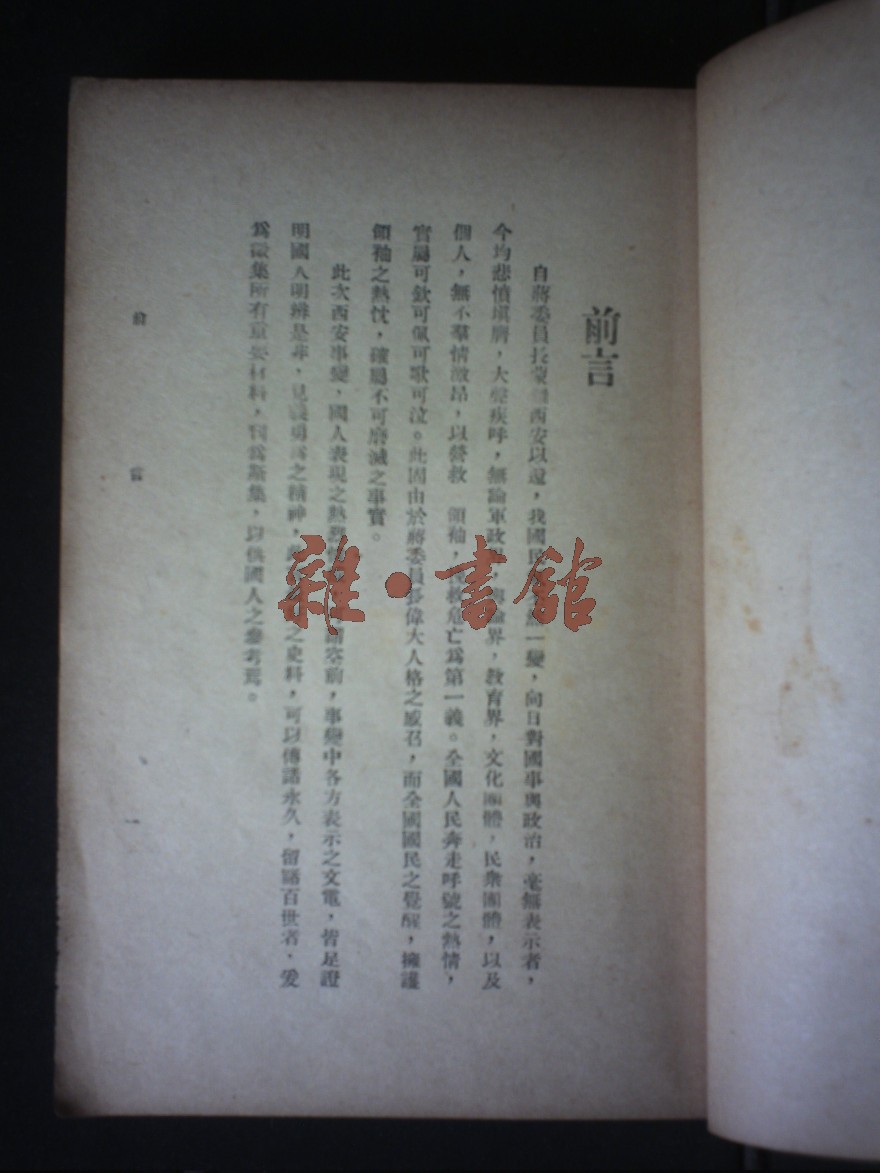 前言
自蔣委員長蒙難西安以還，我國民一變，向日對國事與政治，毫無表示者，
今均悲憤填膺，大聲疾呼，無論軍政界，輿論界，教育界，文化團體，民衆團體，以及
個人，無不羣情激昂，以營救　領袖，危亡爲第一義。全國人民奔走呼號之熱情，
實屬可欽可佩可歌可泣。此因由於蔣委員長偉大人格之感召，而全國國民之覺醒，擁護
領袖之熱忱，確屬不可磨滅之事實。
此次西安事變，國人表現之熱空前，事變中各方表示之文電，皆足證
明國人明辨是非，見義勇爲之精神，之史料，可以傳諸永久，留賜百世者，爰
爲徵集所有重要材料，刊爲斯集，以供國人之參考焉。
前言
一
雜・書館